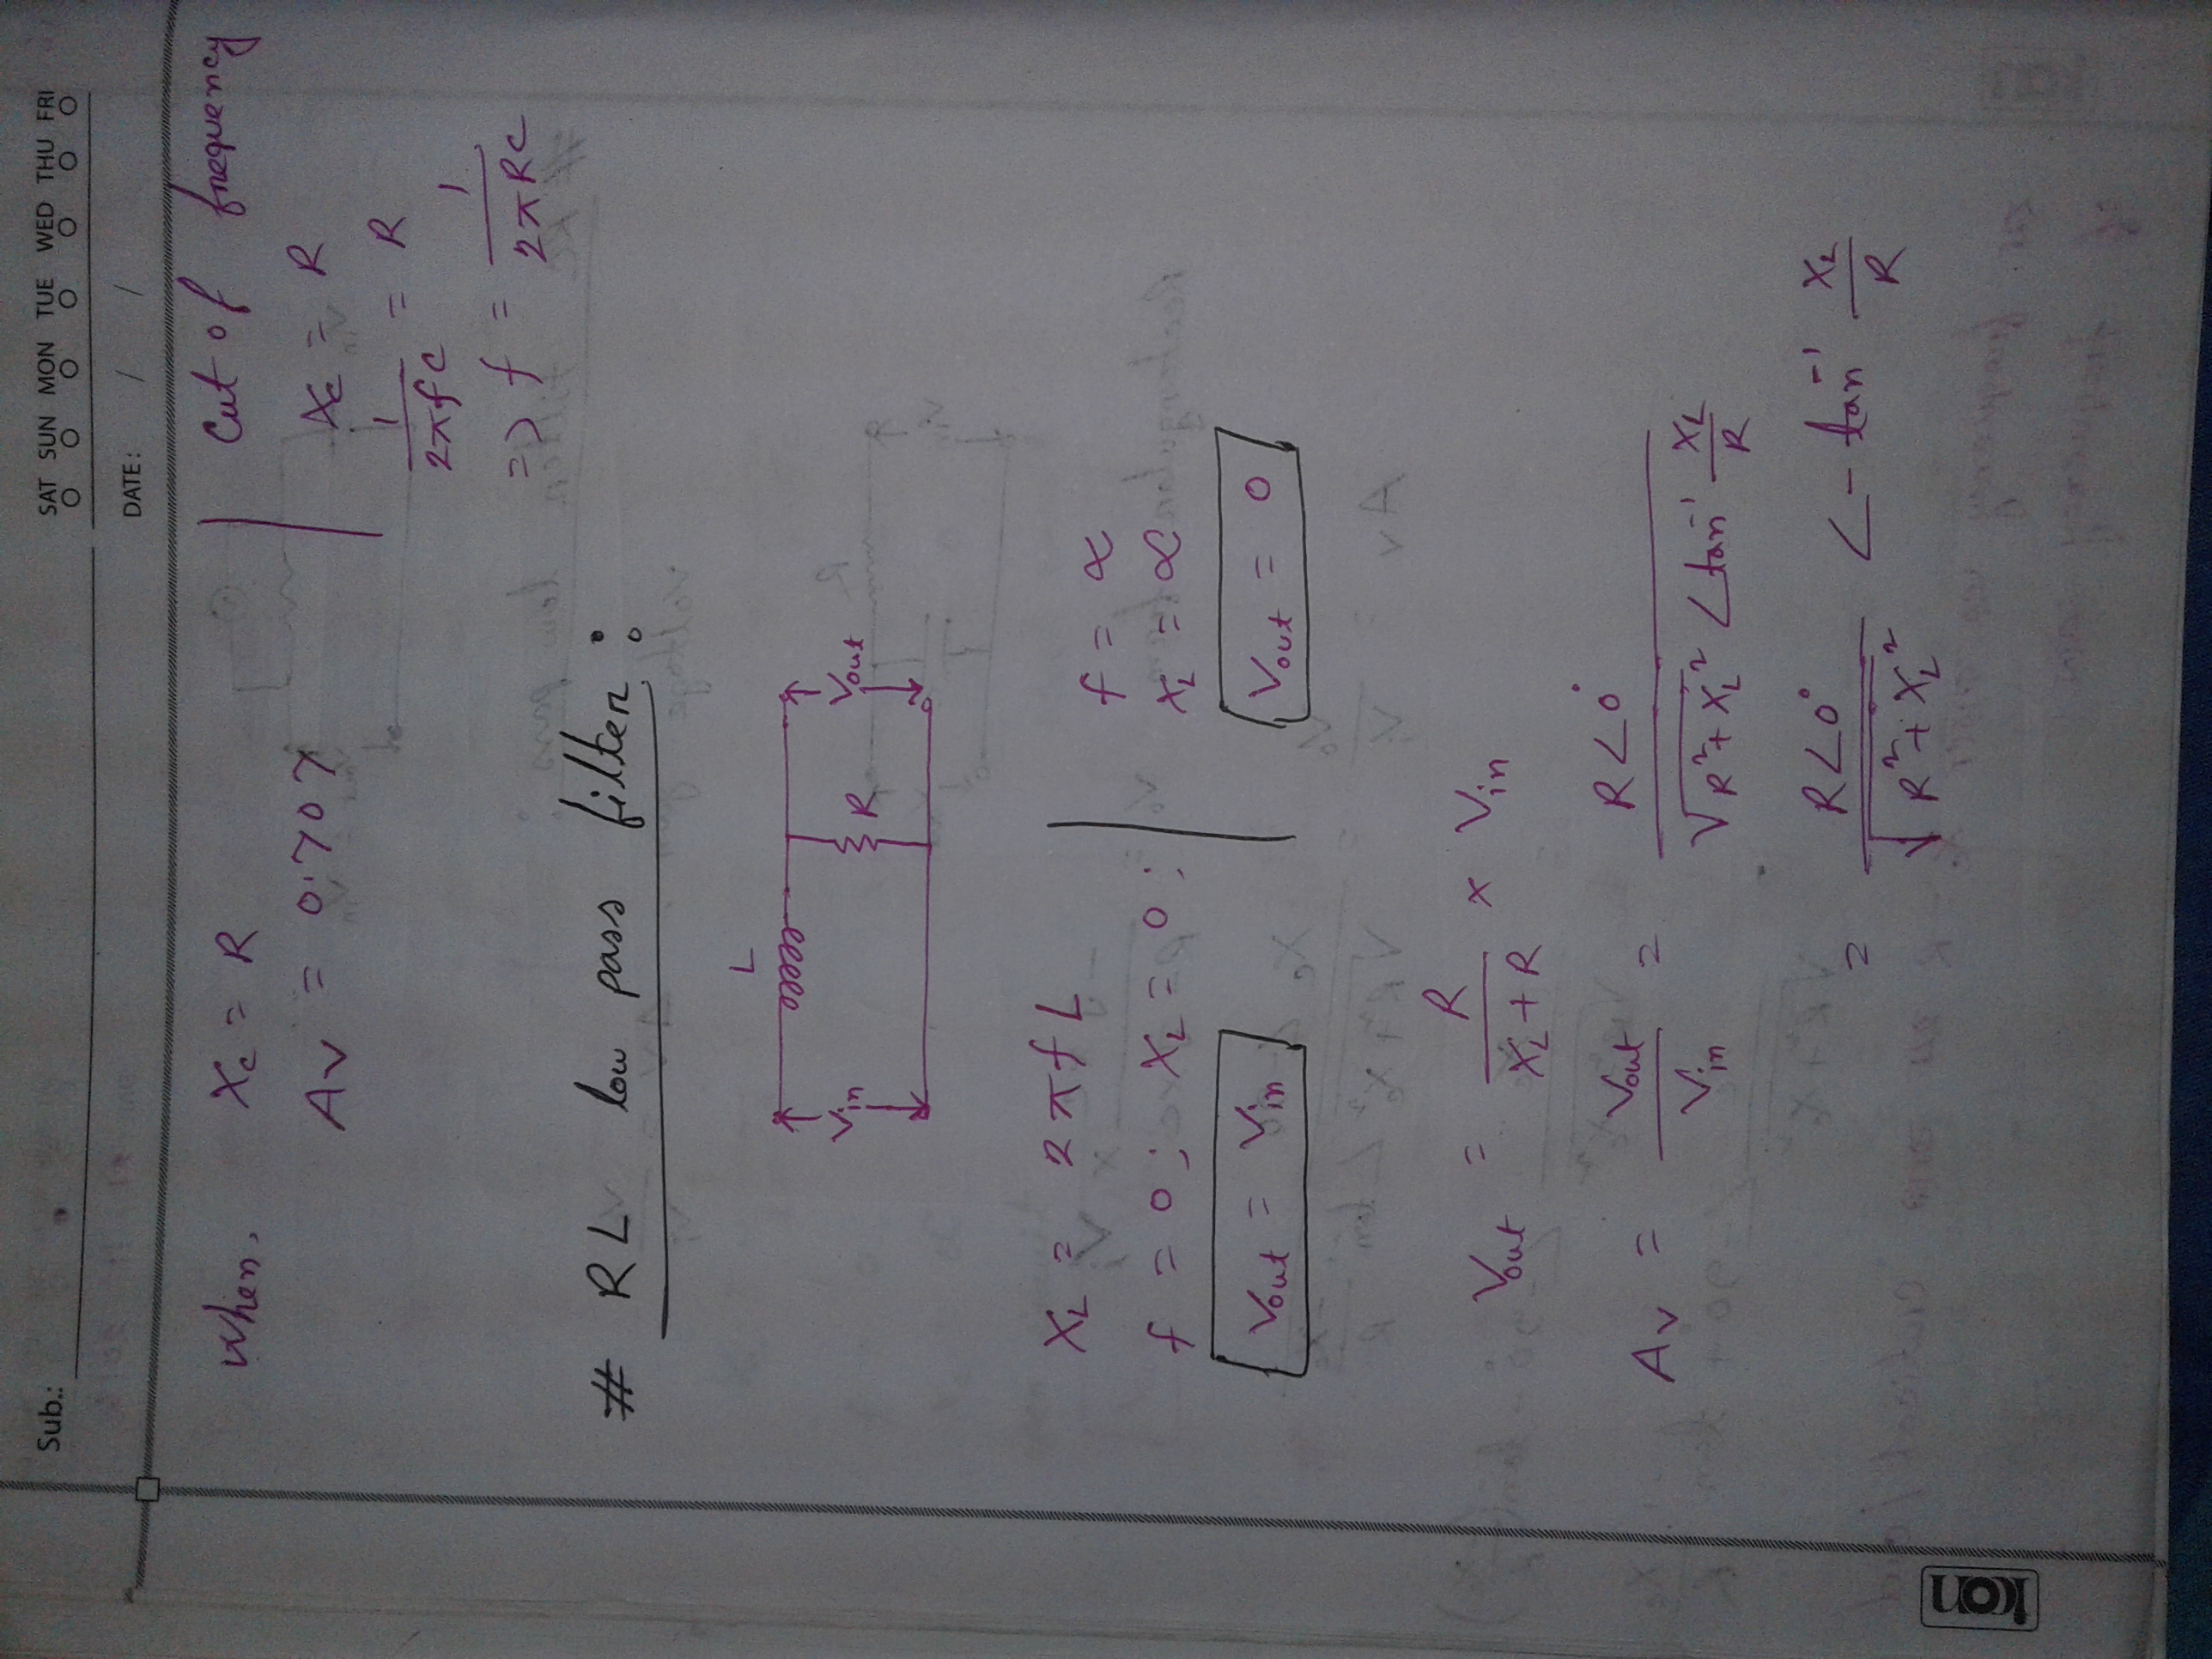 Sub.:
SAT SUN MON TUE WED THU FRI
DATE: / /
When, Xc = R
Av = 0.707
Cut of frequency
Xc = R
1/2πfC = R
=> f = 1/2πRC
# RL low pass filter:
L
Vin
R
Vout
XL = 2πfL
f = 0; XL = 0;
Vout = Vin
f = ∝
XL = ∝
Vout = 0
Vout = R/XL+R × Vin
Av = Vout/Vin = R∠0°/√R²+XL² ∠tan⁻¹ XL/R
= R∠0°/√R²+XL² ∠-tan⁻¹ XL/R
icon